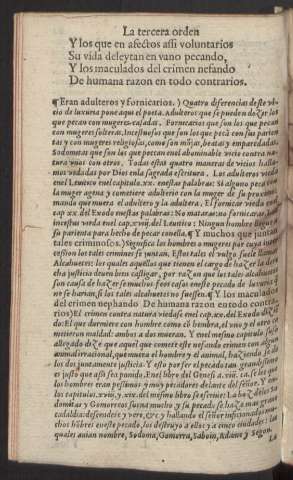 La tercera orden
Y los que en afectos assi voluntarios
Su vida deleytan en vano pecando,
Y los maculados del crimen nefando
De humana razon en todo contrarios.
¶Eran adulteros y fornicarios.) Quatro diferencias deste vi-
cio de luxuria pone aqui el poeta. Adulteros que se pueden dezir los
que pecan con mugeres casadas. Fornicarios que son los que pecan
con mugeres solteras, Incestuosos que son los que pecan con sus parien
tas y con mugeres religiosas, como son mõjas, beatas y emparedadas,
Sodomitas que son los que pecan en el abominable vicio contra na-
tura vnos con otros. Y todas estas quatro maneras de vicios halla-
mos vedadas por Dios en la sagrada escritura. Los adulteros vieda
en el Leuitico en el capitulo.xx. en estas palabras: Si alguno peca con
la muger agena y cometiere adulterio con la muger de su
mando que muera el adultero y la adultera. El fornicar vieda en el
cap.xx. del Exodo en estas palabras: No mataras: no fornicaras.
incestos vieda en el cap.xviij. del Leuitico: Ningun hombre llegue a
su parienta para hecho de pecar conella. ¶Y muchos que juntan
tales criminosos.) Significa los hombres o mugeres por cuya inter
cession los tales criminosos se juntan. Estos tales el vulgo suele llamar
Alcahuetes: los quales aquellos que tienen el cargo de hazer la dere
cha justicia deuen bien castigar, por razon que los tales alcahuetes
son causa de hazerse muchos feos casos en este pecado de luxuria q̃
no se harian, si los tales alcahuetes no fuessen. ¶Y los maculados
del crimen nephando De humana razon en todo contra-
rios) El crimen contra natura viedase en el cap.xx. del Exodo di
do: El que durmiere con hombre como cõ hembra, el vno y el otro
metieron maldad: ambos a dos mueran. Y en el mesmo capitulo suso
allegado dize que aquel que comete este nefando crimen con algun
animal irracional, que muera el hombre y el animal, haziendo de
los dos juntamente justicia. Y esto por ser el pecado tan grandissimo
es justo que assi sea punido. En el libro del Genesi a.xiij. ca. se lee que
los hombres eran pessimos y muy pecadores delante del señor. Y en
los capitulos.xviij. y.xix. del mesmo libro se escriue: La boz de los So
domitas y Gomorreos suena mucho y su pecado se haze mas graue
cada dia: descendere y vere, &c. y hallando el señor inficionados mu-
chos hõbres en este pecado, los destruyo a ellos y a cinco ciudades: las
quales auian nombre, Sodoma, Gomorra, Saboin, Adama y Segor.
La